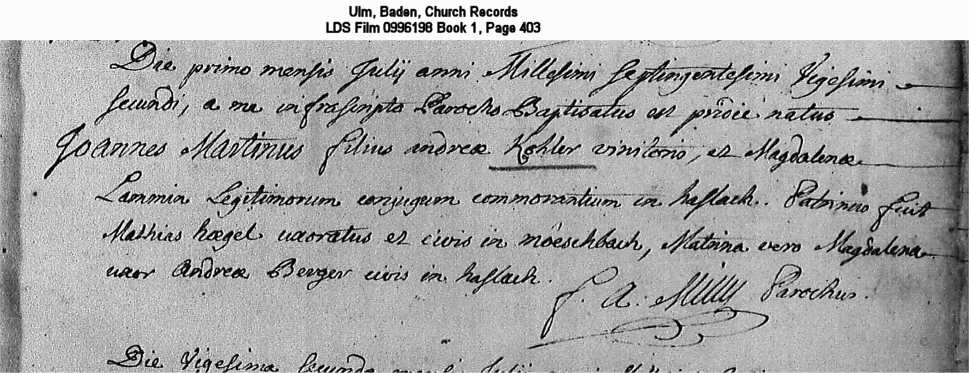 Ulm, Baden, Church Records
LDS Film 0996198 Book 1, Page 403
Die primo mensis Julij anni Millesimi Septingentesimi Vigesimi
secundi, a me infrascripto Parocho Baptisatus est pridie natus
Joannes Martinus filius andreæ Kohler vinitorio, et Magdalenæ
Lammin Legitimorum conjugum commorantium in haslach. Patrinus fuit
Mathias hægel uxoratus et civis in möeschbach, Matrina vero Magdalena
uxor Andreæ Berger civis in haslach.
f. A. Parochus.
Die Vigesima secunda Julij anni